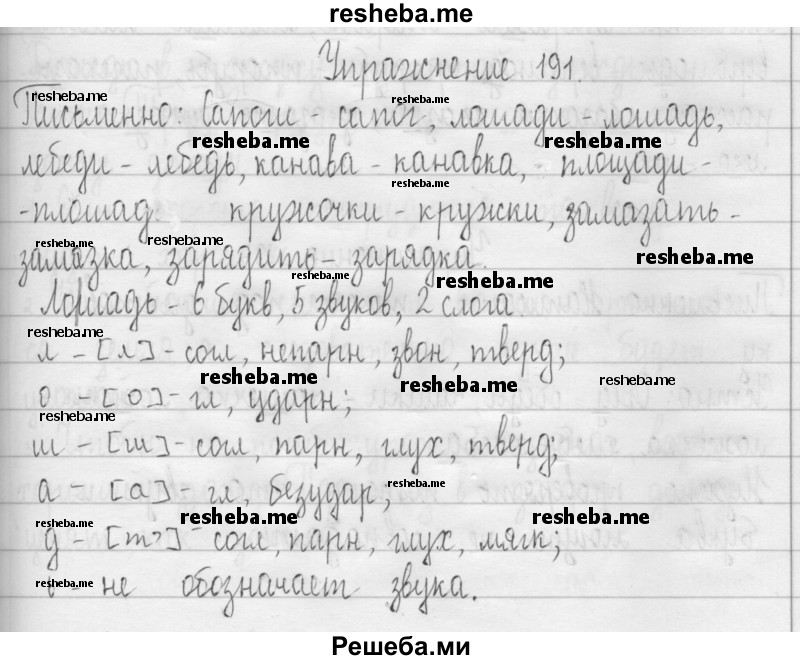 resheba.me
Упражнение 191.
resheba.me
Письменно: Сапоги - сапог, лошади - лошадь,
resheba.me
resheba.me resheba.me
лебеди - лебедь, канава - канавка, площади -
resheba.me
-площад. кружочки - кружки, замазать -
resheba.me resheba.me resheba.me
замазка, зарядить - зарядка.
resheba.me
resheba.me
Лошадь - 6 букв, 5 звуков, 2 слога.
resheba.me
л - [л] - согл, непарн, звон, тверд;
resheba.me resheba.me resheba.me
о - [о] - гл, ударн;
resheba.me
ш - [ш] - согл, парн, глух, тверд;
а - [а] - гл, безудар;
resheba.me
resheba.me resheba.me resheba.me
д - [т'] - согл, парн, глух, мягк;
resheba.me
ь - не обозначает звука.
Решеба.ми